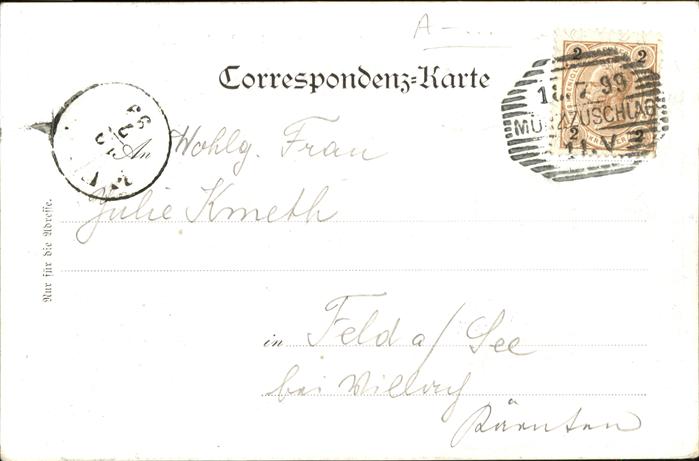 A
Correspondenz-Karte
2 2
18. 7. 99
MÜRZZUSCHLAG
2 2
11. V
An Wohlg. Frau
Julie Kmeth
Nur für die Adresse.
in Feld a/ See
bei Villach
Kärnten